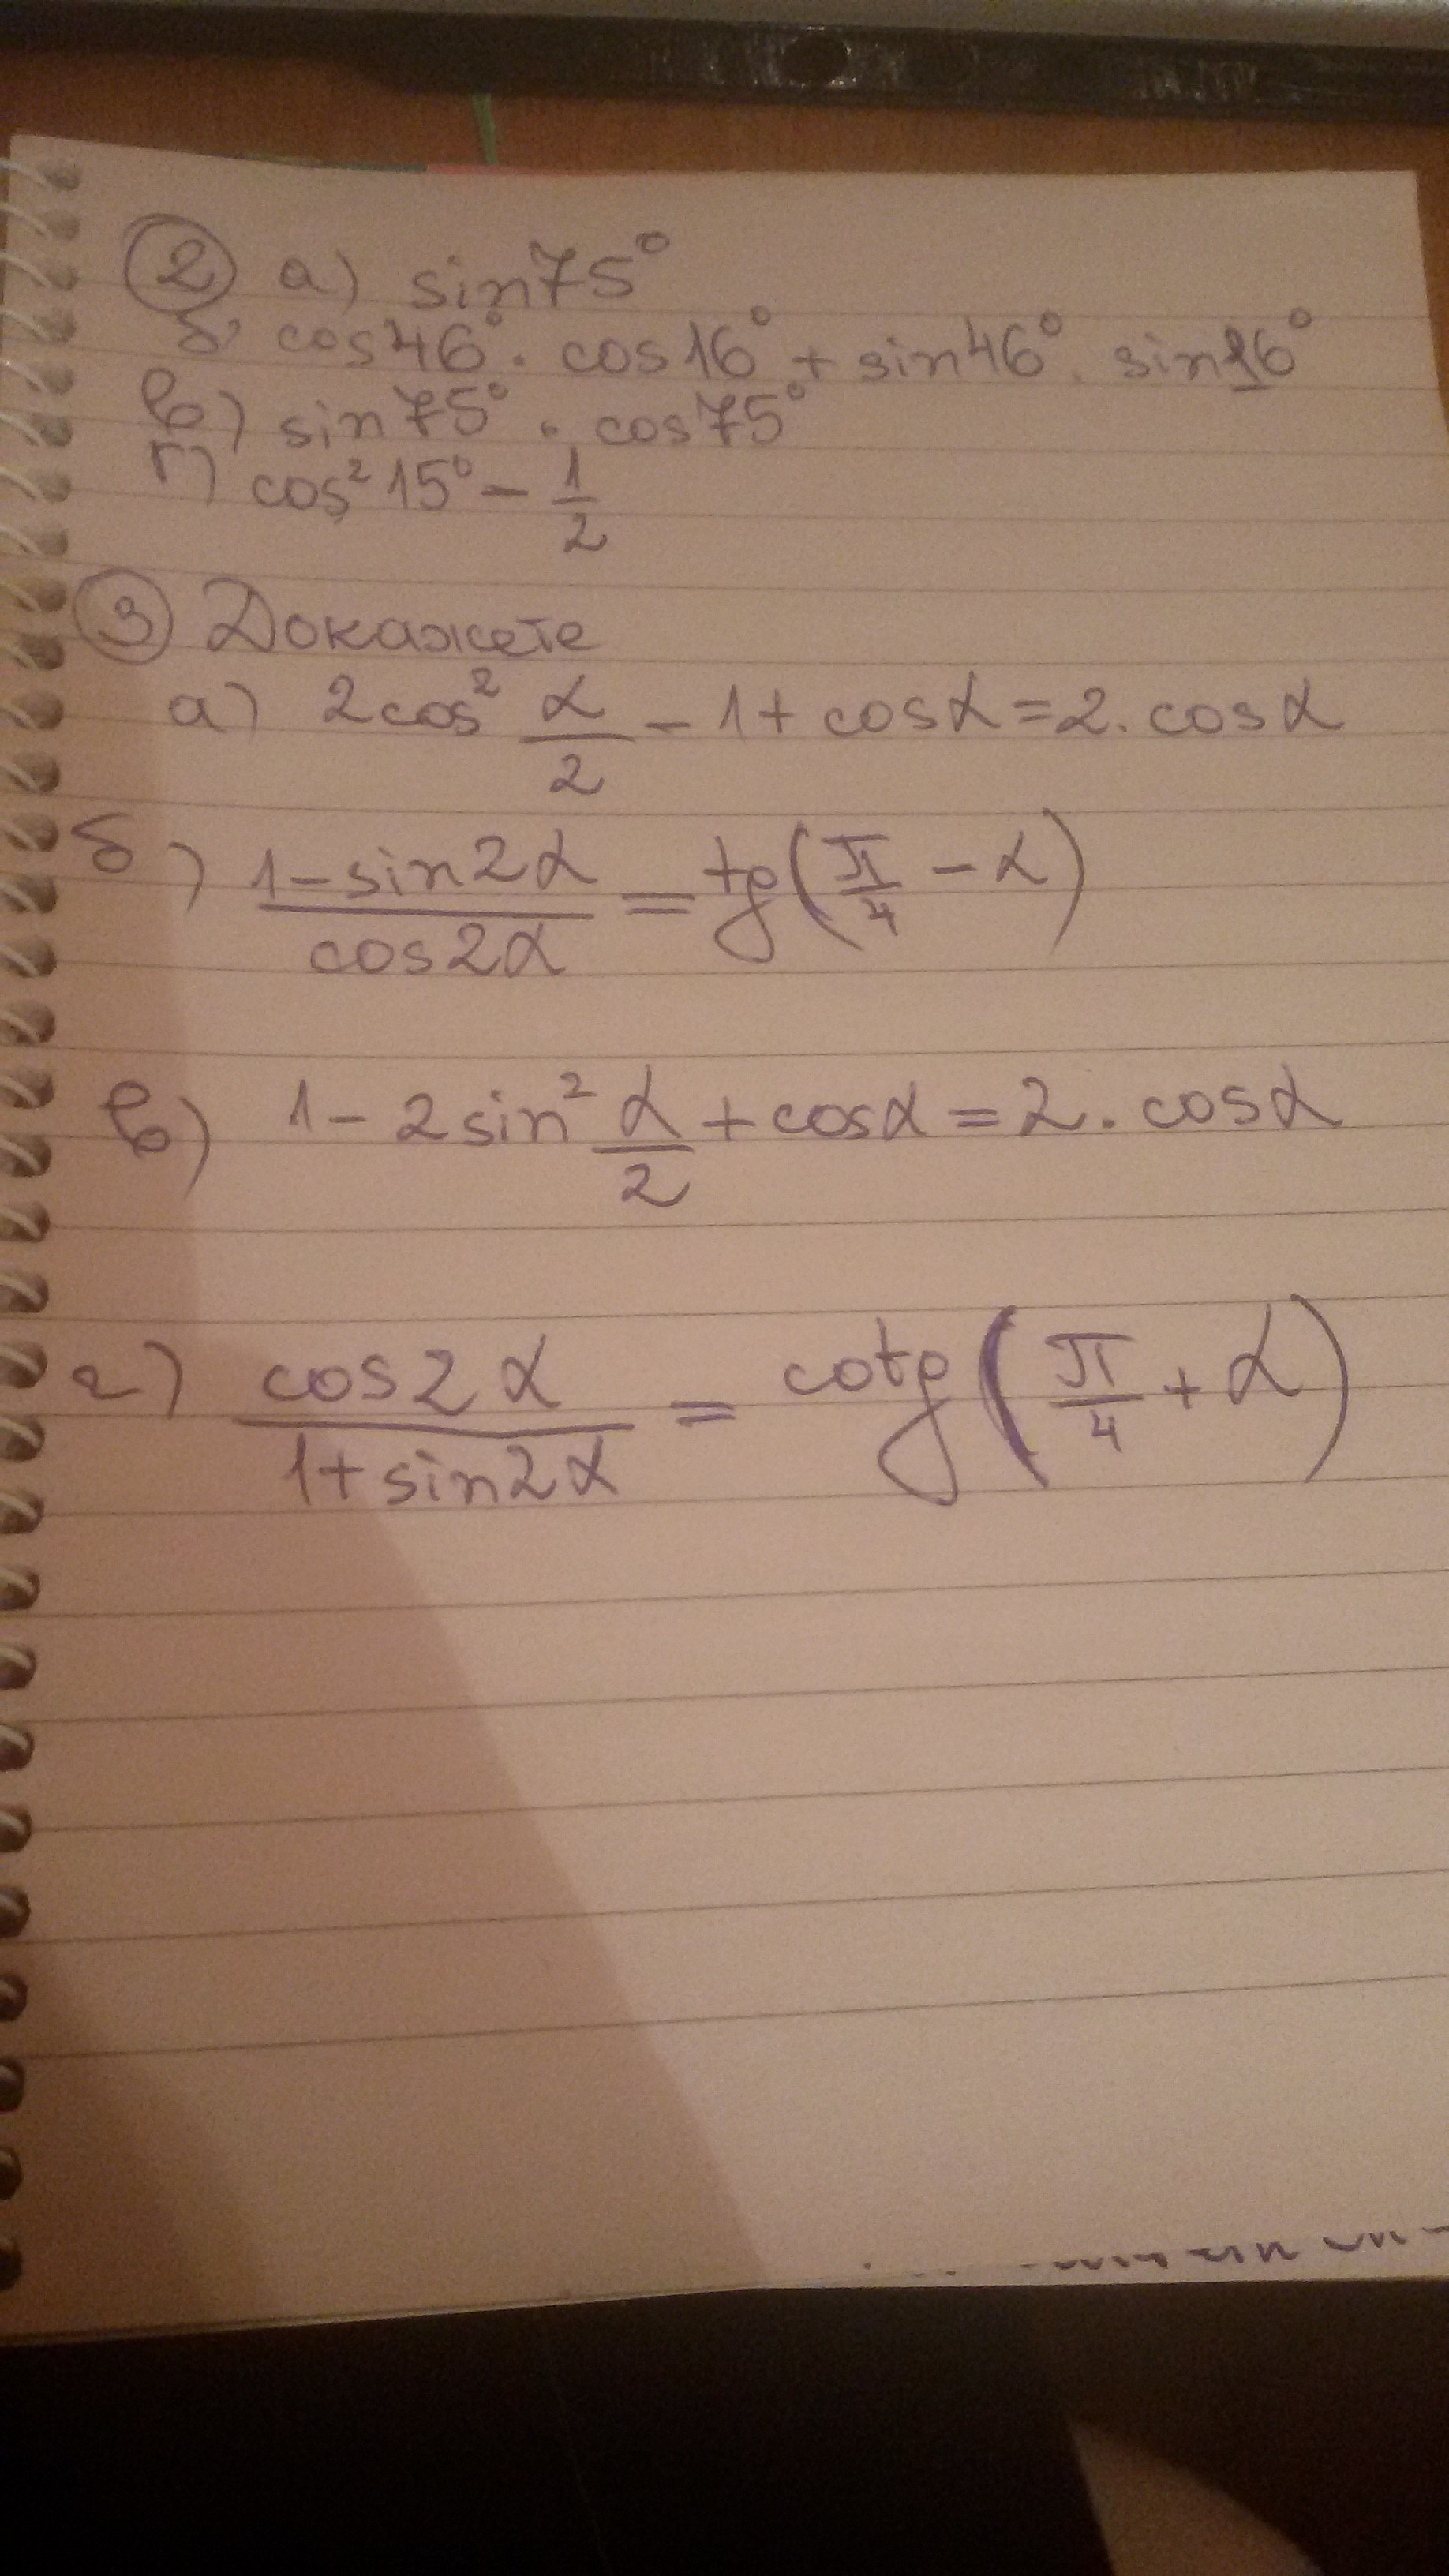 ② а) sin75°
б) cos46° . cos16° + sin46° . sin16°
в) sin75° . cos75°
г) cos² 15° - 1/2
③ Докажете
а) 2cos² α/2 - 1 + cosα = 2. cosα
б) (1-sin2α)/(cos2α) = tg(π/4 - α)
в) 1 - 2sin² α/2 + cosα = 2. cosα
г) (cos2α)/(1+sin2α) = cotg(π/4 + α)